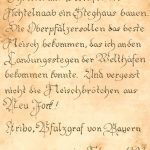 Fichtelnaab ein Steghaus bauen.
Die Oberpfälzer sollen das beste
Fleisch bekommen, das ich an den
Landungsstegen der Welthäfen
bekommen konnte. Und vergesst
nicht die Fleischbrötchen aus
New York!
Aribo, Pfalzgraf von Bayern